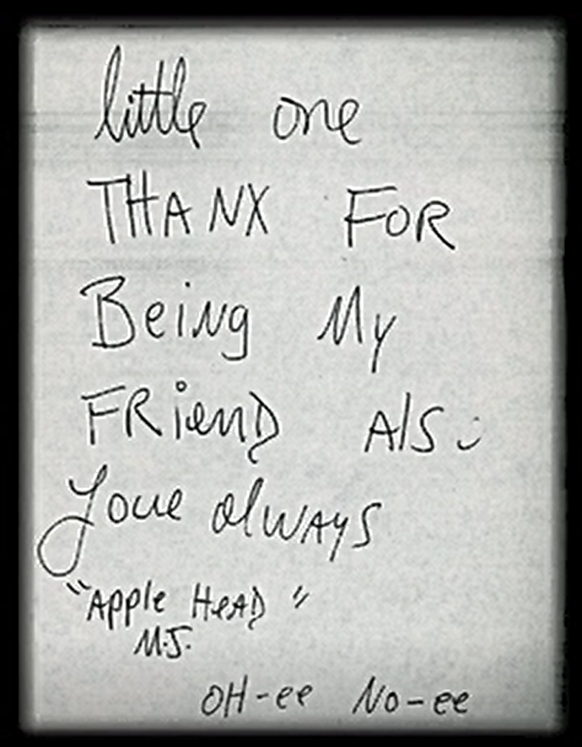 little one
THANX FOR
Being My
FRienD AlSo
Love alWAYS
"Apple HeAD"
M.J.
OH-ee No-ee